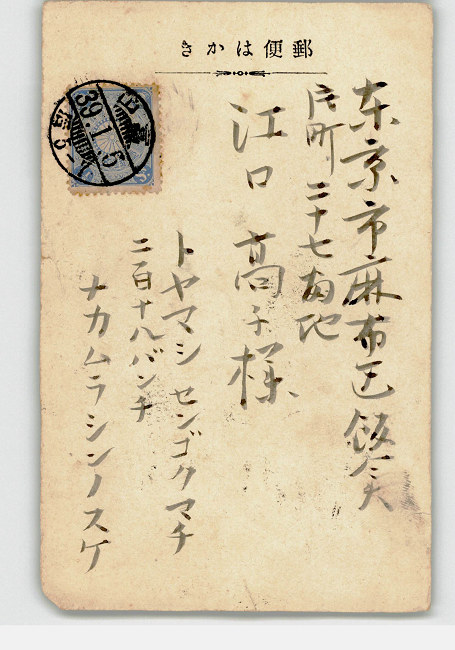 郵便はかき
東京市麻布区飯倉
片町 二十七番地
江口 高子様
トヤマシ センゴクマチ
二百十八バンチ
ナカムラシンノスケ
39.1.5